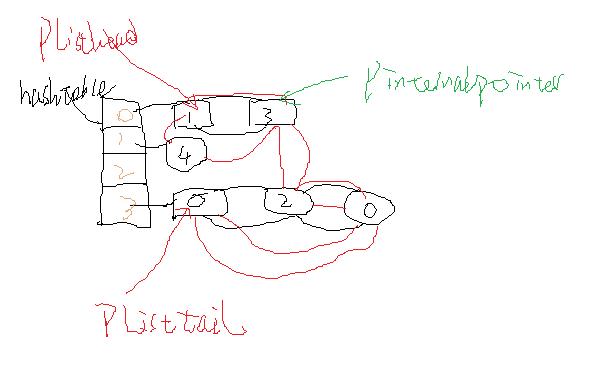 PListhead
hashtable
PinternalPointer
0
1
3
1
4
2
3
5
2
0
PListtail